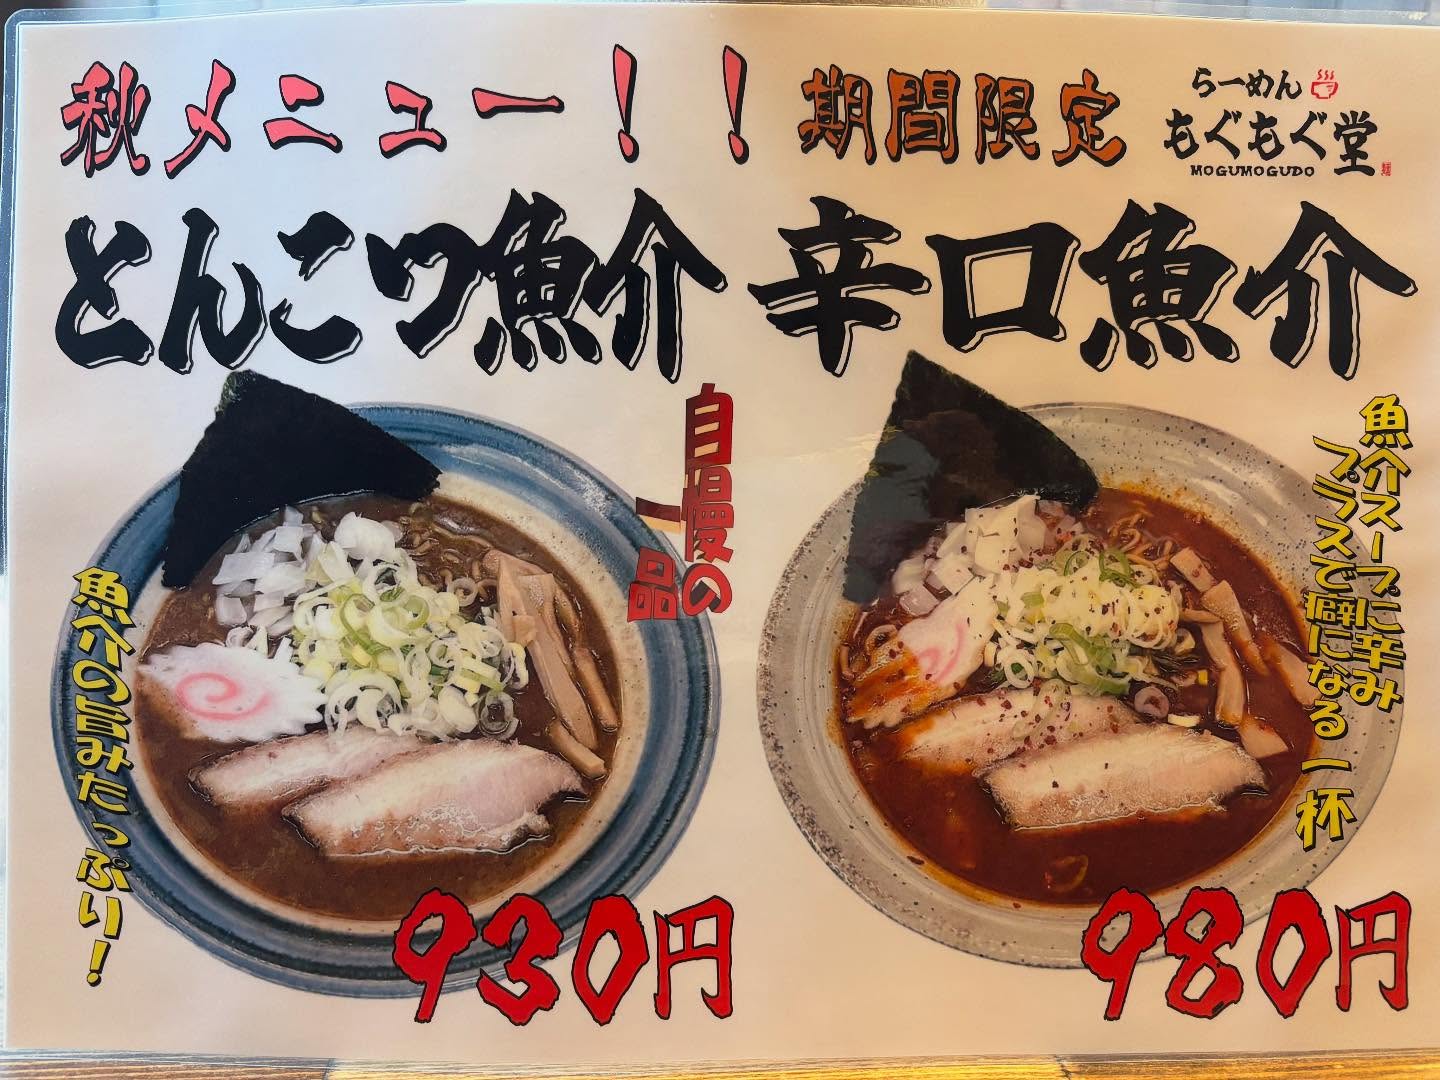 秋メニュー！！
期間限定
らーめん
もぐもぐ堂
MOGUMOGUDO
とんこつ魚介
辛口魚介
自慢の
一品
魚介スープに辛み
プラスで癖になる一杯
魚介の旨みたっぷり！
930円
980円